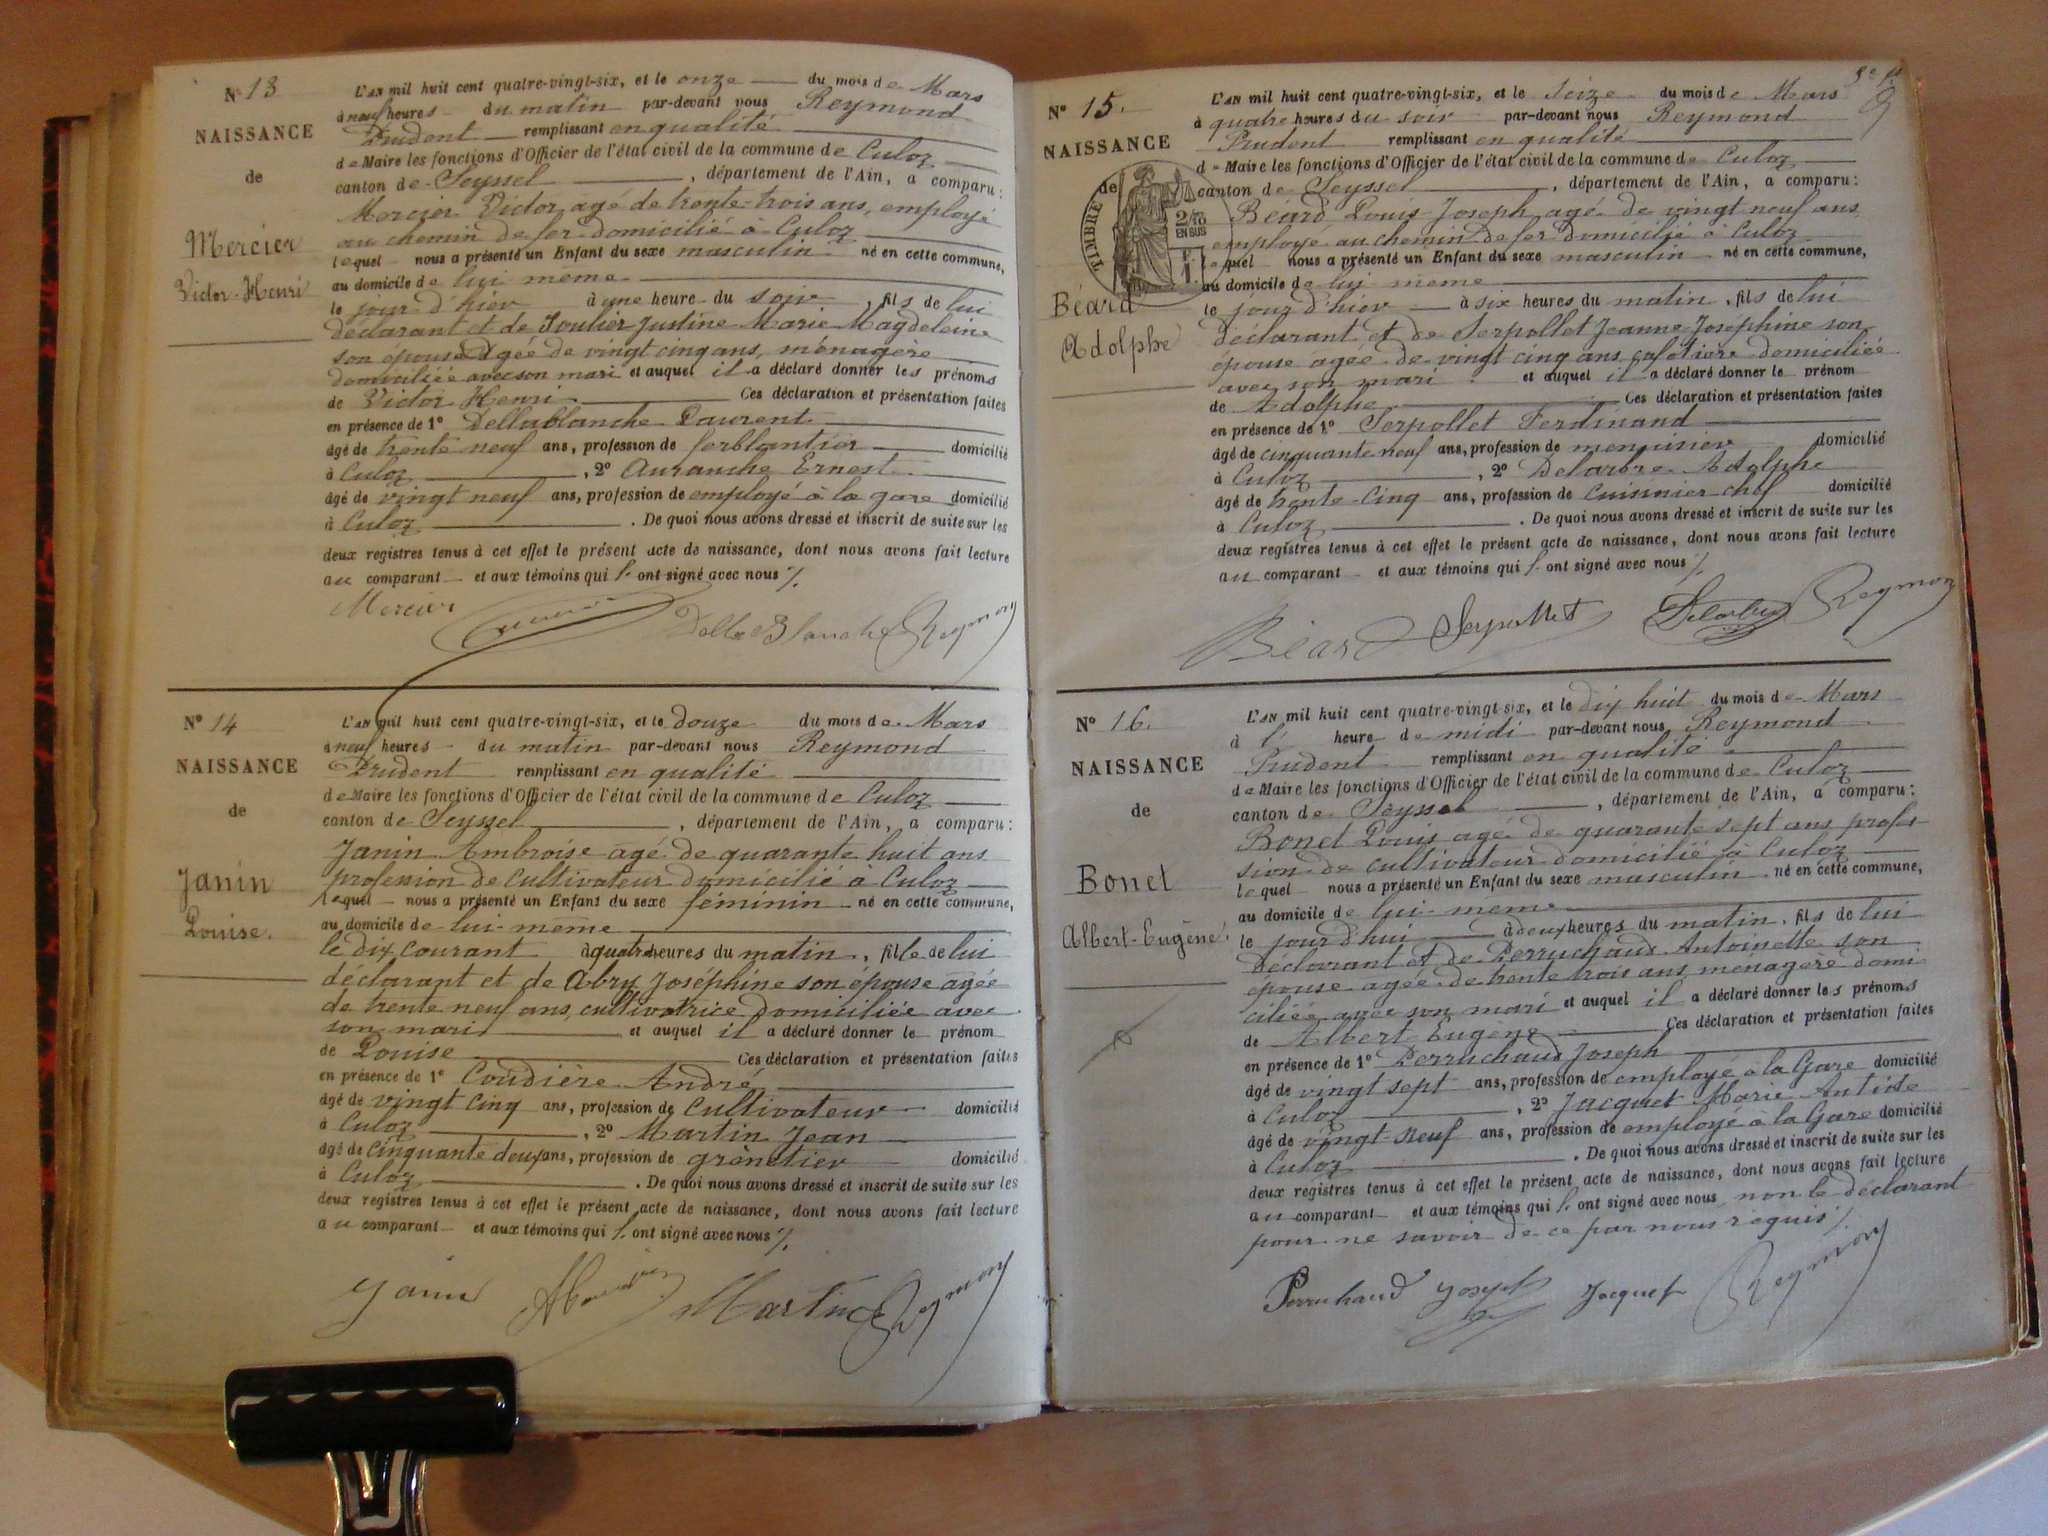 N° 13
NAISSANCE
de
Mercier
Victor-Henri
L'AN mil huit cent quatre-vingt-six, et le onze du mois de Mars
à neuf heures du matin par-devant nous Reymond
Prudent remplissant en qualité
de Maire les fonctions d'Officier de l'état civil de la commune de Culoz
canton de Seyssel, département de l'Ain, a comparu:
Mercier Victor agé de trente-trois ans, employé
au chemin de fer domicilié à Culoz
lequel nous a présenté un Enfant du sexe masculin né en cette commune,
au domicile de lui même
le jour d'hier à une heure du soir, fils de lui
déclarant et de Soulier Justine Marie Magdeleine
son épouse agée de vingt cinq ans, ménagère
domiciliée avec son mari et auquel il a déclaré donner les prénoms
de Victor Henri Ces déclaration et présentation faites
en présence de 1° Dellablanche Laurent
âgé de trente neuf ans, profession de ferblantier domicilié
à Culoz, 2° Auranche Ernest
âgé de vingt neuf ans, profession de employé à la gare domicilié
à Culoz. De quoi nous avons dressé et inscrit de suite sur les
deux registres tenus à cet effet le présent acte de naissance, dont nous avons fait lecture
au comparant et aux témoins qui l' ont signé avec nous
Mercier DellaBlanche Reymond
N° 14
NAISSANCE
de
Janin
Louise.
L'AN mil huit cent quatre-vingt-six, et le douze du mois de Mars
à neuf heures du matin par-devant nous Reymond
Prudent remplissant en qualité
de Maire les fonctions d'Officier de l'état civil de la commune de Culoz
canton de Seyssel, département de l'Ain, a comparu:
Janin Ambroise agé de quarante huit ans
profession de Cultivateur domicilié à Culoz
lequel nous a présenté un Enfant du sexe féminin né en cette commune,
au domicile de lui-même
le dix courant à quatre heures du matin, fille de lui
déclarant et de Abry Joséphine son épouse agée
de trente neuf ans, cultivatrice domiciliée avec
son mari et auquel il a déclaré donner le prénom
de Louise Ces déclaration et présentation faites
en présence de 1° Coudière André
âgé de vingt cinq ans, profession de Cultivateur domicilié
à Culoz, 2° Martin Jean
âgé de cinquante deux ans, profession de grènetier domicilié
à Culoz. De quoi nous avons dressé et inscrit de suite sur les
deux registres tenus à cet effet le présent acte de naissance, dont nous avons fait lecture
au comparant et aux témoins qui l' ont signé avec nous
Janin Martin Reymond
N° 15.
NAISSANCE
de
TIMBRE
2/10
EN SUS
Béard
Adolphe
L'AN mil huit cent quatre-vingt-six, et le Seize du mois de Mars
à quatre heures du soir par-devant nous Reymond
Prudent remplissant en qualité
de Maire les fonctions d'Officier de l'état civil de la commune de Culoz
canton de Seyssel, département de l'Ain, a comparu:
Béard Louis-Joseph agé de vingt neuf ans
employé au chemin de fer domicilié à Culoz
lequel nous a présenté un Enfant du sexe masculin né en cette commune,
au domicile de lui même
le jour d'hier à six heures du matin, fils de lui
déclarant et de Serpollet Jeanne-Joséphine son
épouse agée de vingt cinq ans, cafetière domiciliée
avec son mari. et auquel il a déclaré donner le prénom
de Adolphe Ces déclaration et présentation faites
en présence de 1° Serpollet Ferdinand
âgé de cinquante neuf ans, profession de menuisier domicilié
à Culoz, 2° Delarbre Adolphe
âgé de trente-cinq ans, profession de Cuisinier chef domicilié
à Culoz. De quoi nous avons dressé et inscrit de suite sur les
deux registres tenus à cet effet le présent acte de naissance, dont nous avons fait lecture
au comparant et aux témoins qui l' ont signé avec nous
Béard Serpollet Reymond
N° 16.
NAISSANCE
de
Bonet
Albert-Eugène
L'AN mil huit cent quatre-vingt-six, et le dix huit du mois de Mars
à l' heure de midi par-devant nous Reymond
Prudent remplissant en qualité
de Maire les fonctions d'Officier de l'état civil de la commune de Culoz
canton de Seyssel, département de l'Ain, a comparu:
Bonet Louis agé de quarante sept ans profes-
sion de cultivateur domicilié à Culoz
lequel nous a présenté un Enfant du sexe masculin né en cette commune,
au domicile de lui-même
le jour d'hui à deux heures du matin, fils de lui
déclarant et de Perruchaud Antoinette son
épouse agée de trente trois ans ménagère domi-
ciliée avec son mari et auquel il a déclaré donner les prénoms
de Albert Eugène Ces déclaration et présentation faites
en présence de 1° Perruchaud Joseph
âgé de vingt sept ans, profession de employé à la Gare domicilié
à Culoz, 2° Jacquet Marie Antide
âgé de vingt-neuf ans, profession de employé à la Gare domicilié
à Culoz. De quoi nous avons dressé et inscrit de suite sur les
deux registres tenus à cet effet le présent acte de naissance, dont nous avons fait lecture
au comparant et aux témoins qui l' ont signé avec nous non le déclarant
pour ne savoir de ce par nous requis
Perruchaud Joseph Jacquet Reymond